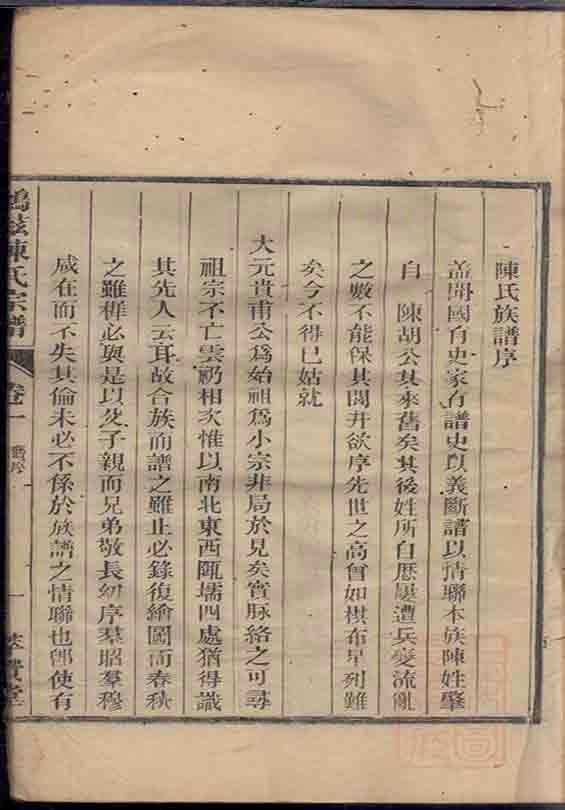 陳氏族譜序
盖聞國有史家有譜史以義斷譜以情聯本族陳姓肇
自　陳胡公其來舊矣其後姓所自歷屢遭兵變流亂
之數不能保其閭井欲序先世之高曾如棋布星列難
矣今不得已姑就
大元貴甫公爲始祖爲小宗非局於見矣實脉絡之可尋
祖宗不亡雲礽相次惟以南北東西阡壖四處猶得識
其先人云耳故合族而譜之雖止必錄復繪圖而春秋
之雖徙必與是以父子親而兄弟敬長幼序羣昭羣穆
咸在而不失其倫未必不係於族譜之情聯也卽使有
鳩兹陳氏宗譜
卷一
舊序
一
萃賢堂